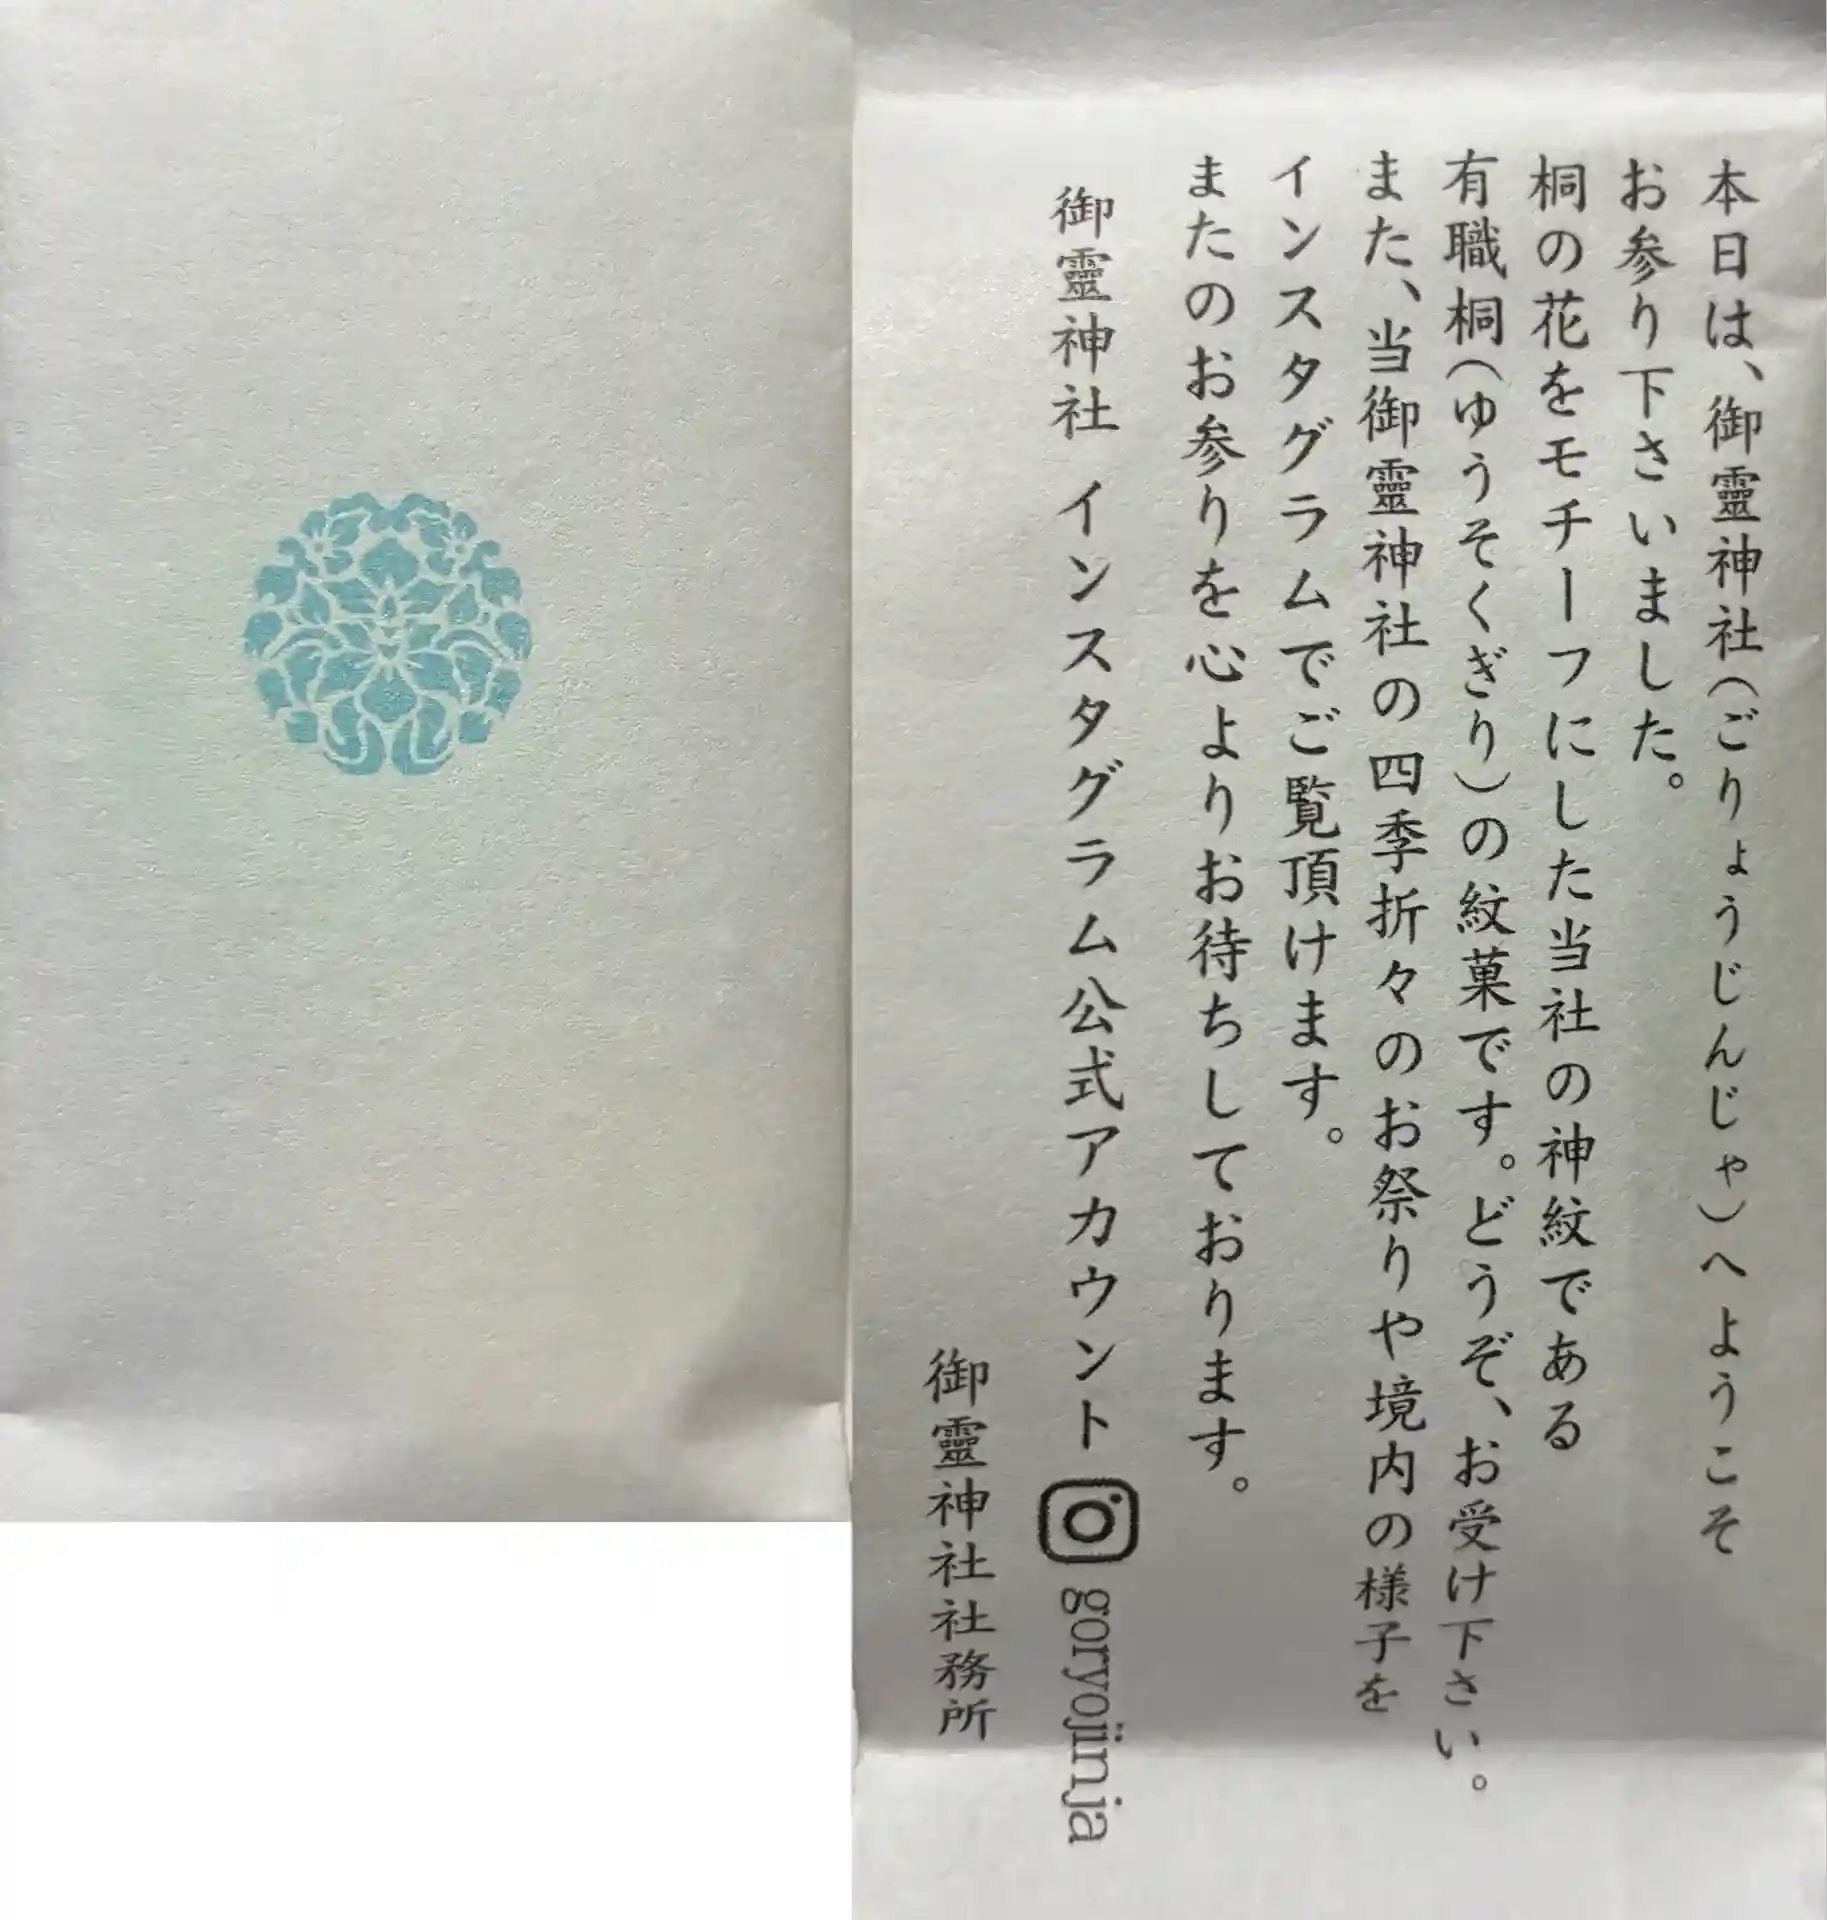 本日は、御靈神社(ごりょうじんじゃ)へようこそ
お参り下さいました。
桐の花をモチーフにした当社の神紋である
有職桐(ゆうそくぎり)の紋菓です。どうぞ、お受け下さい。
また、当御靈神社の四季折々のお祭りや境内の様子を
インスタグラムでご覧頂けます。
またのお参りを心よりお待ちしております。
御靈神社 インスタグラム公式アカウント goryojinja
御靈神社社務所